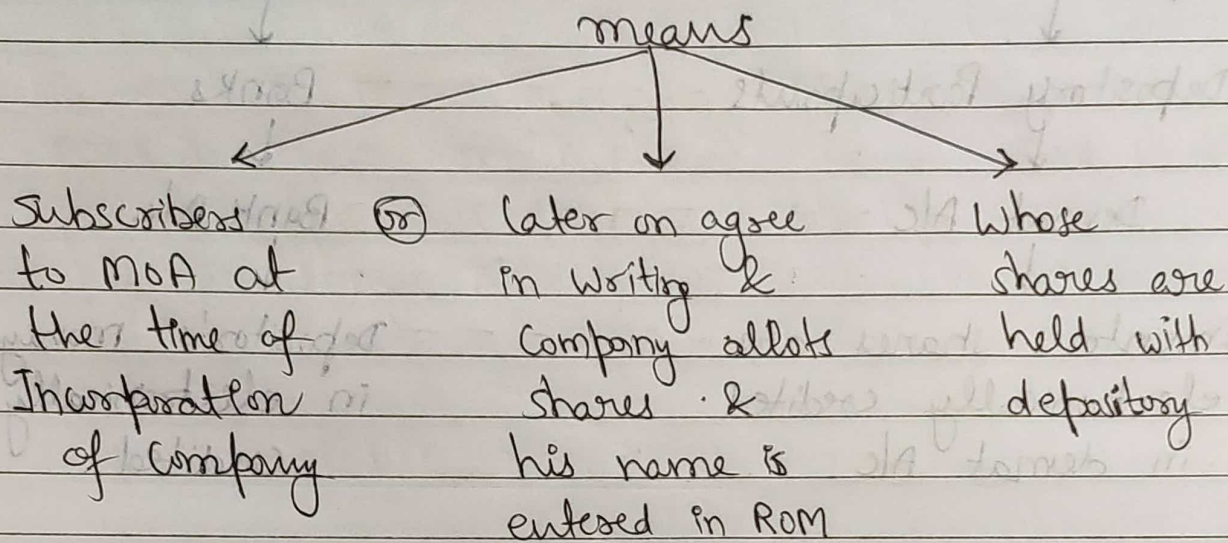 means
subscribers
to MOA at
the time of
Incorporation
of company
or
later on agree
in writing &
company allots
shares &
his name is
entered in ROM
whose
shares are
held with
depository